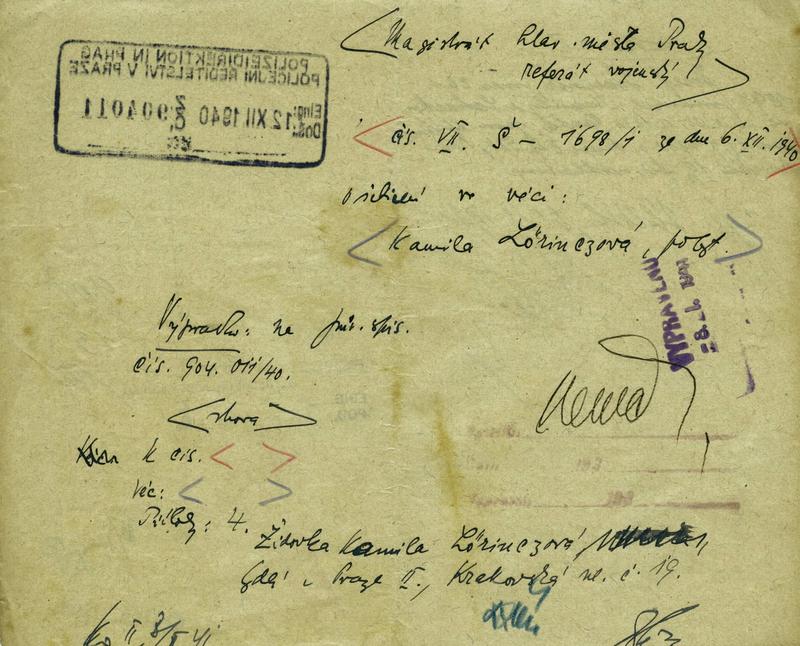 POLIZEIDIREKTION IN PRAG
POLICEJNÍ ŘEDITELSTVÍ V PRAZE
Eing.
Doš. 12 XII 1940 Z. Č. 904011
Magistrát hlav. města Prahy
referát vojenský
čís. VII. Š – 1698/1 ze dne 6. XII. 1940
o sdělení ve věci:
Kamila Lörinczová, pobyt.
VYPRAVENO
Výpravdu: na pův. spis.
čís. 904.011/40.
shora
k čís.
věc:
Přílohy: 4.
Židovka Kamila Lörinczová,
bydlí v Praze II., Krakovská ul. č. 19.